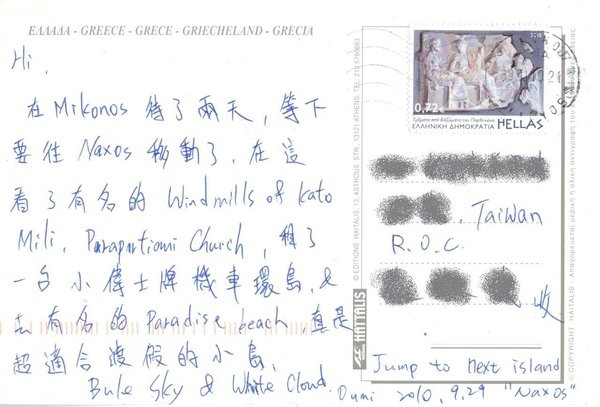 ΕΛΛΑΔΑ - GREECE - GRECE - GRIECHELAND - GRECIA
Hi,
在 Mikonos 待了兩天，等下
要往 Naxos 移動了，在這
看了有名的 Windmills of Kato
Mili, Paraportiani Church, 租了
一台小偉士牌機車環島, &
去有名的 Paradise beach, 真是
超適合渡假的小島,
Bule Sky & White Cloud.
Oumi 2010, 9.29 "Naxos"
2010
0,72€
Τμήματα από διαζώματα του Παρθενώνα
ΕΛΛΗΝΙΚΗ ΔΗΜΟΚΡΑΤΙΑ HELLAS
, Taiwan
R.O.C.
收
Jump to next island
© EDITIONS HAITALIS, 13, ASTROUS STR., 13121 ATHENS, TEL. 210 5766883
HAITALIS
© COPYRIGHT HAITALIS Απαγορεύεται μερική η ολική αντιγραφή του